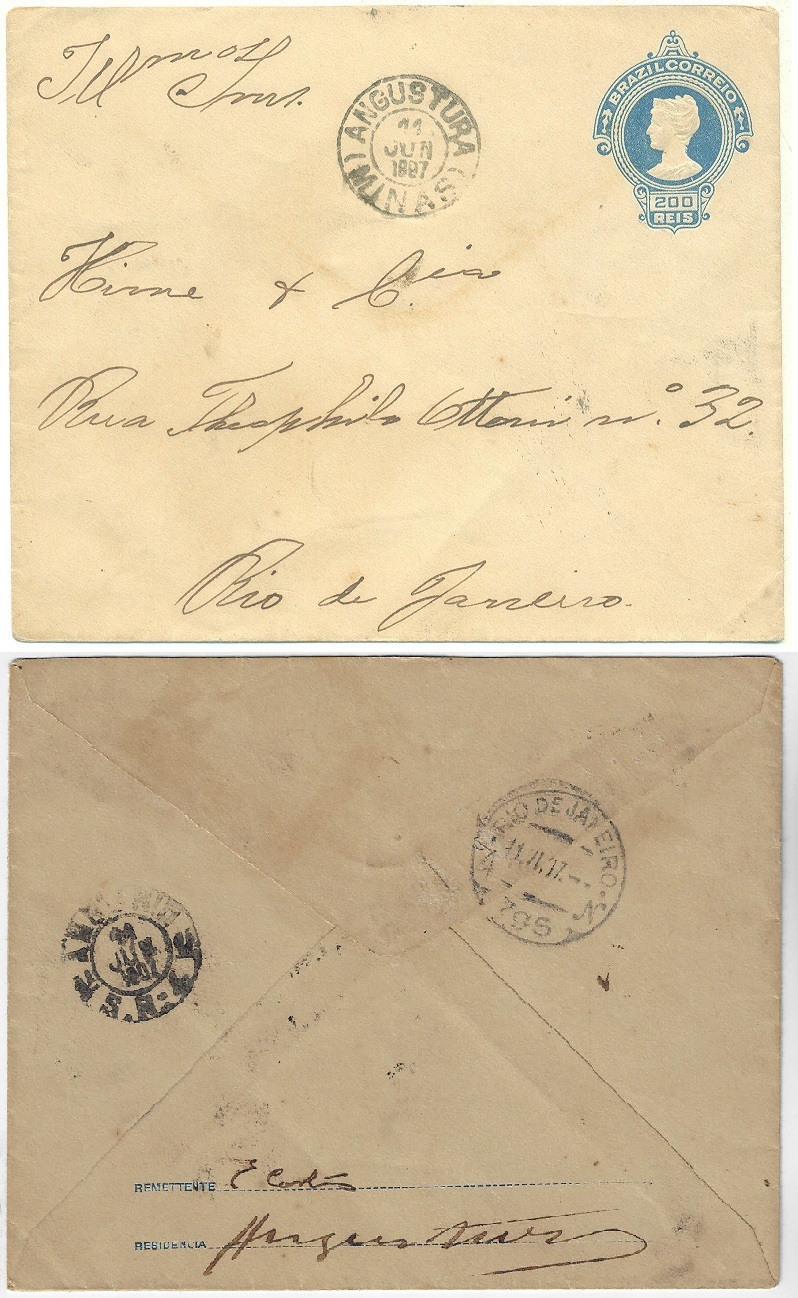 Illmos Snrs.
ANGUSTURA
11
JUN
1907
(MINAS)
BRAZIL CORREIO
200
REIS
Hime & Cia
Rua Theophilo Ottoni nº 32.
Rio de Janeiro.
RIO DE JANEIRO
11
JUN
1907
REMETTENTE E Cortes
RESIDENCIA Angustura